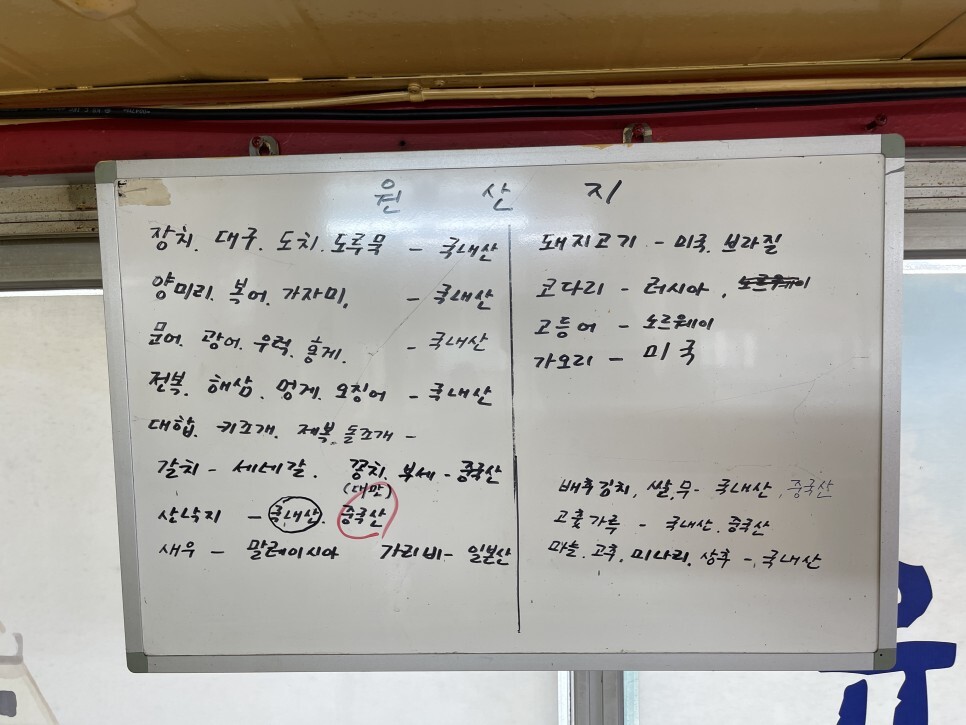 원 산 지
장치. 대구. 도치. 도루묵 - 국내산
양미리. 복어. 가자미, - 국내산
문어. 광어. 우럭. 홍게. - 국내산
전복. 해삼. 멍게. 오징어 - 국내산
대합. 키조개. 제복. 돌조개 -
갈치 - 세네갈. 꽁치. 부세 - 중국산
(대만)
산낙지 - 국내산. 중국산
새우 - 말레이시아 가리비 - 일본산
돼지고기 - 미국. 브라질
코다리 - 러시아, 노르웨이
고등어 - 노르웨이
가오리 - 미국
배추김치, 쌀, 무 - 국내산, 중국산
고춧가루 - 국내산. 중국산
마늘. 고추. 미나리. 상추 - 국내산